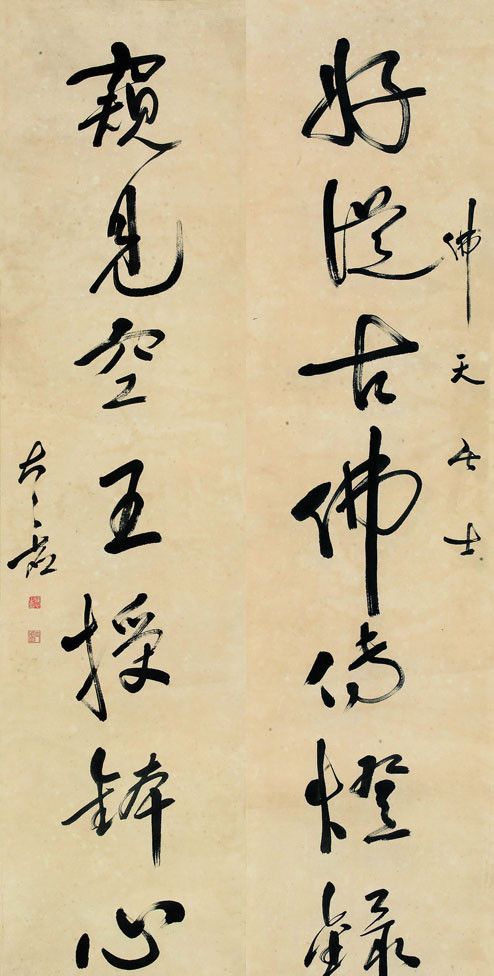 佛天居士
好從古佛傳燈錄
窺見空王授鉢心
太虛